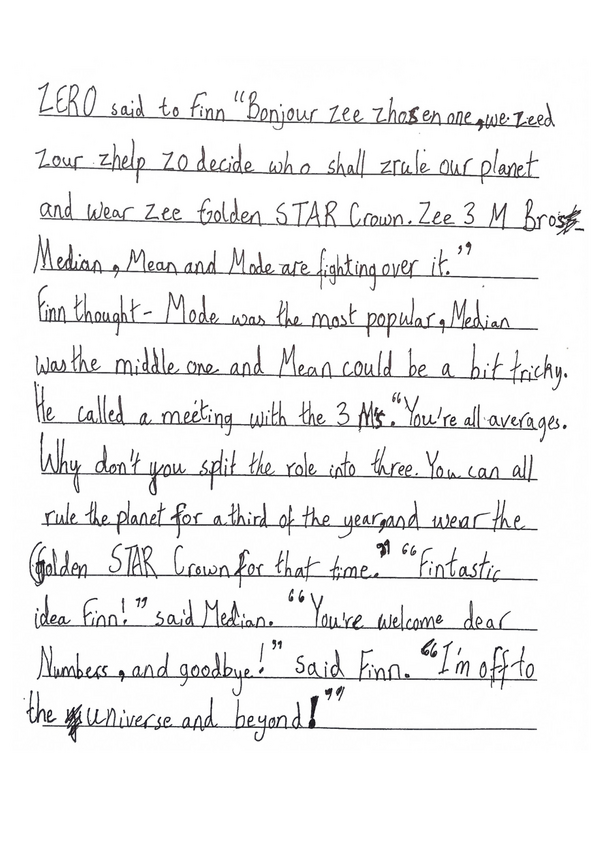 ZERO said to Finn "Bonjour zee zhosen one, we zeed
zour zhelp zo decide who shall zrule our planet
and wear zee Golden STAR Crown. Zee 3 M Bros
Median, Mean and Mode are fighting over it."
Finn thought - Mode was the most popular, Median
was the middle one and Mean could be a bit tricky.
He called a meeting with the 3 Ms. "You're all averages.
Why don't you split the role into three. You can all
rule the planet for a third of the year, and wear the
Golden STAR Crown for that time." "Fintastic
idea Finn!" said Median. "You're welcome dear
Numbers, and goodbye!" said Finn. "I'm off to
the universe and beyond!"